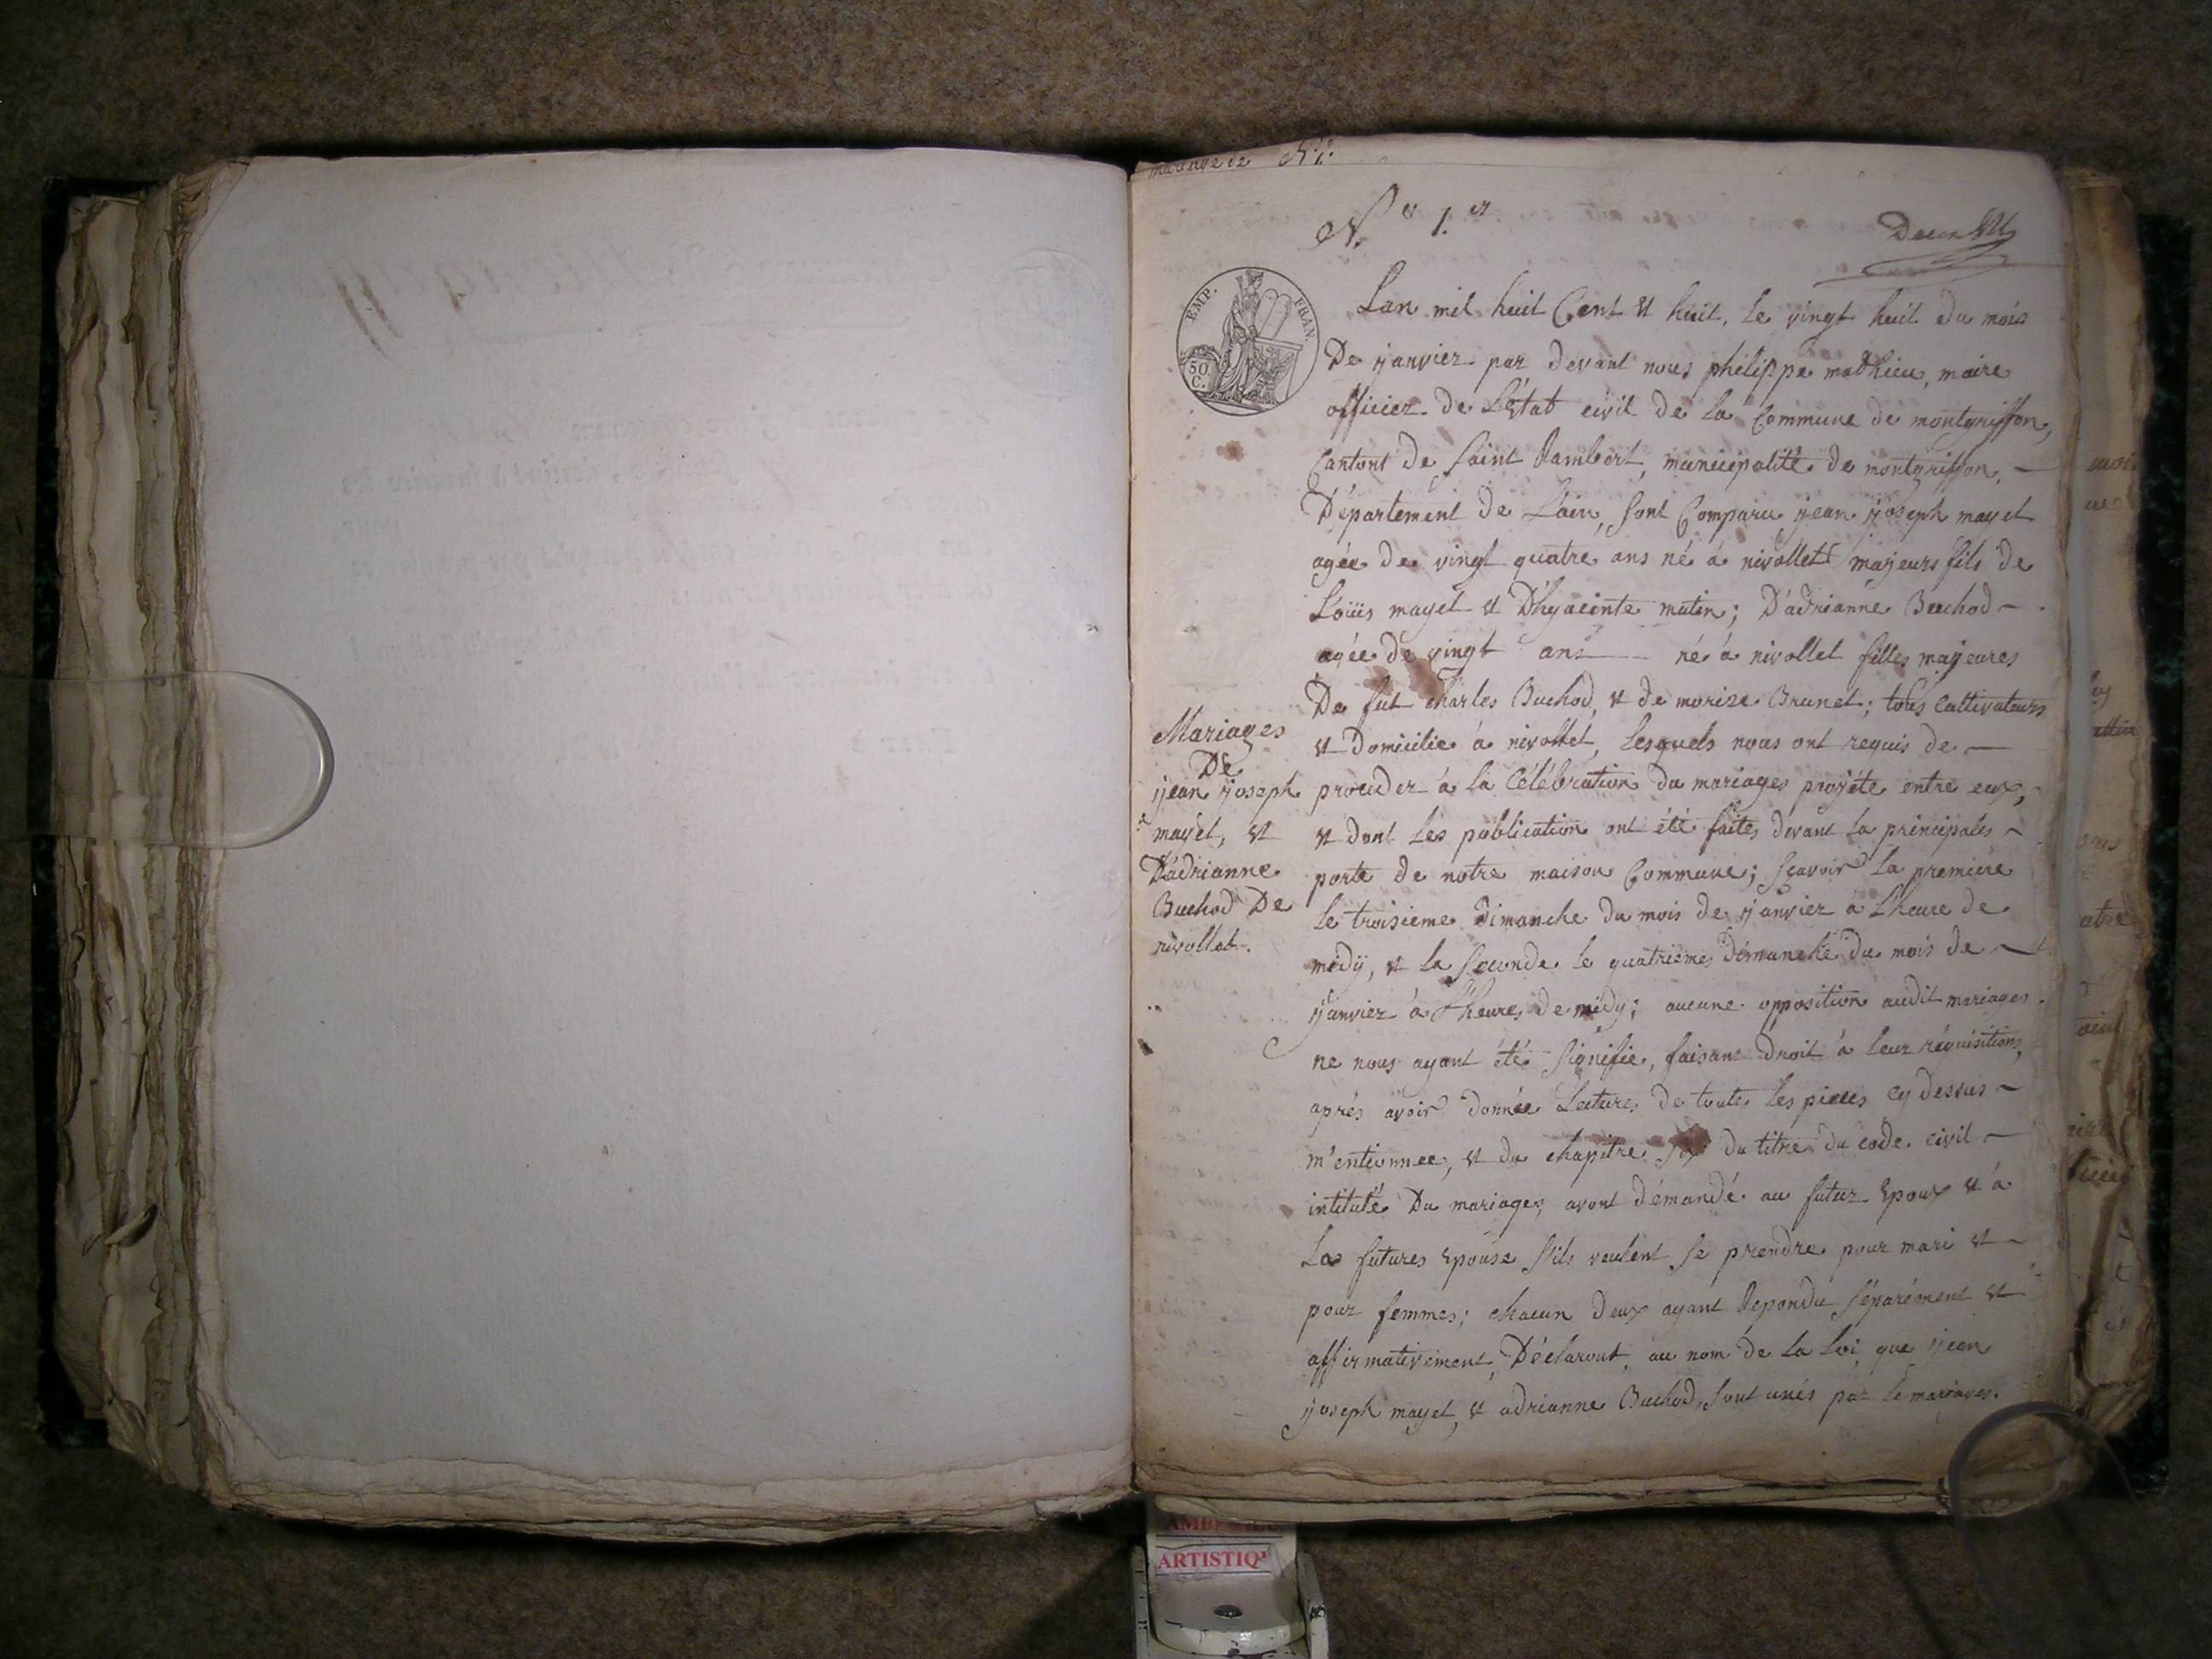 mariage de N.1.
N.o 1.er
EMP. FRAN.
50 C.
Lan mil huit Cent et huit, le vingt huit du mois
De jjanvier par devant nous philippe mathieu, maire
officier de L'état civil de la Commune de montgriffon,
Cantont de saint Rambert, municipalité de montgriffon,
Département de Lain, sont Comparu jjean jjoseph mayet
agée de vingt quatre ans né a nivollet majeurs fils de
Loüis mayet et D'hyacinte matin; D'adrianne Buchod
agée de vingt ans né a nivollet filles majeures
De fut Charles Buchod, et de morize Brunet; tous cultivateurs
et Domicilie a nivollet, lesquels nous ont requis de
proceder a la Célébration du mariages projéte entre eux,
et dont les publication ont été faites devant la principales
porte de notre maison Commune; sçavoir la premiere
le troisieme Dimanche du mois de jjanvier a Lheure de
midÿ, et la seconde le quatriemes Dimanche du mois de
jjanvier a l'heures de midy; aucune opposition audit mariages
ne nous ayant été signifie, faisant Droit a leur réquisitions,
aprés avoir donnée Lectures de toutes les pieces cy dessus
m'entionnee, et du chapitre six du titre du code civil
intitulé Du mariages, avont démandé au futur Epoux et a
La futures Epouse s'ils veulent se prendre pour mari et
pour femmes; chacun Deux ayant Repondu séparément et
affirmativement, Déclaront, au nom de la Loi que jjean
jjoseph mayet, et adrianne Buchod, sont unis par le mariages.
Mariages
De
jjean jjoseph
mayet, et
D'adrianne
Buchod De
nivollet.
ARTISTIQ